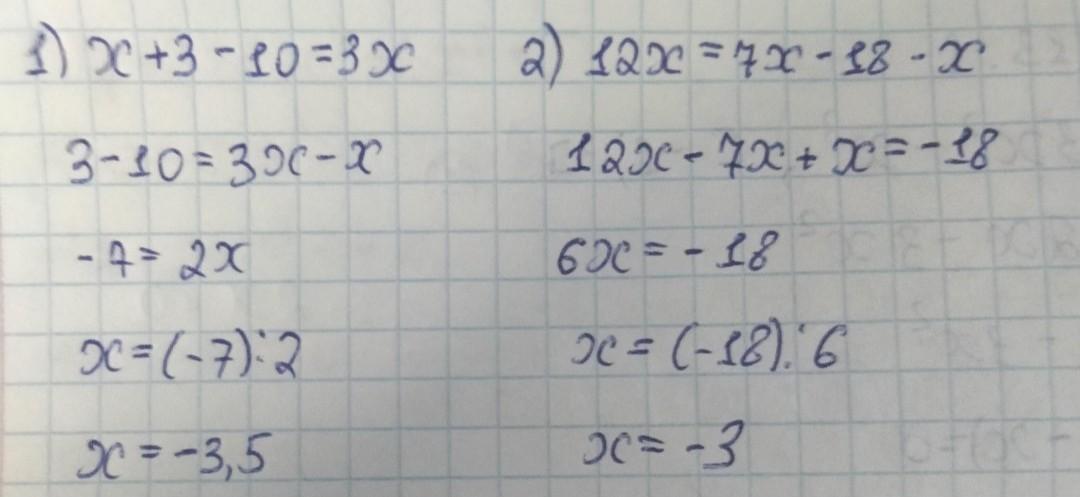 1) x + 3 - 10 = 3x
3 - 10 = 3x - x
- 7 = 2x
x = (-7) : 2
x = -3,5
2) 12x = 7x - 18 - x
12x - 7x + x = -18
6x = - 18
x = (-18) : 6
x = -3